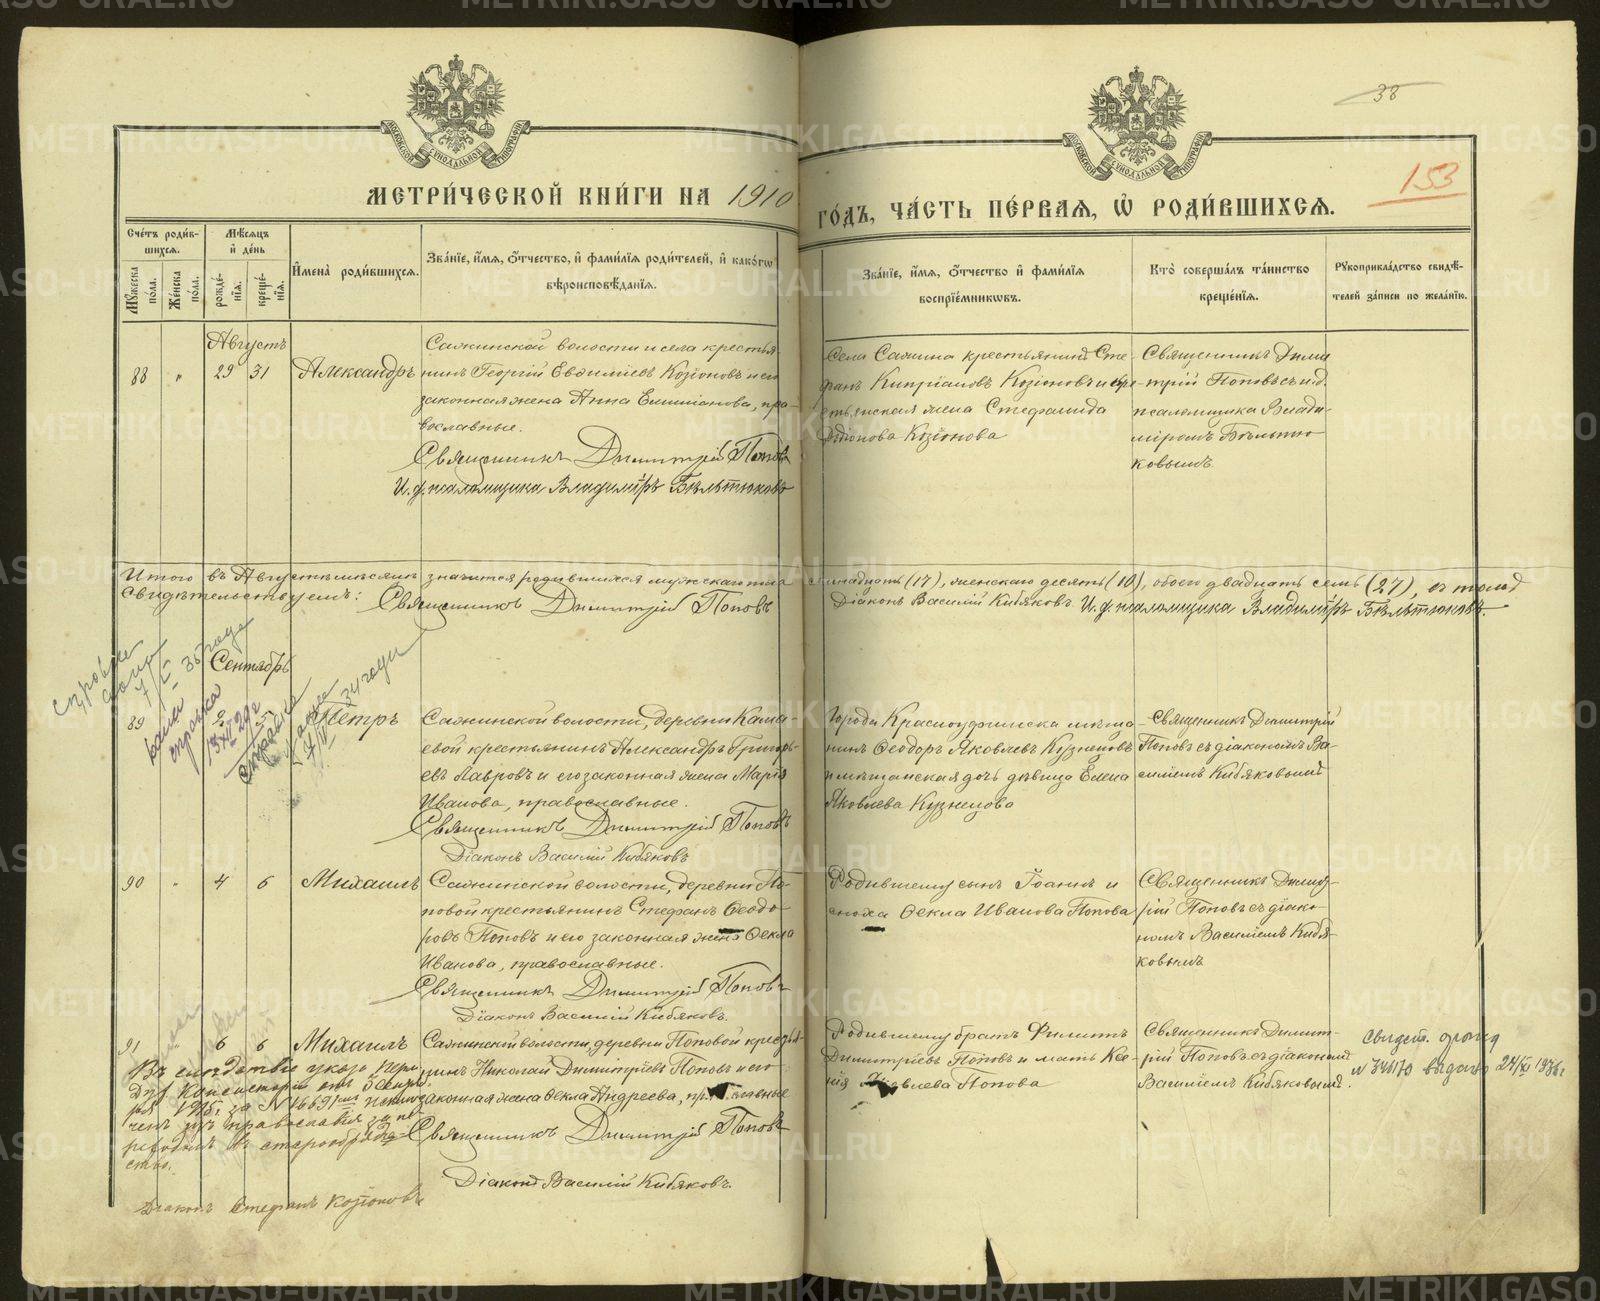 38
153
МОСКОВСКОЙ СѴНОДАЛЬНОЙ ТИПОГРАФІИ
МОСКОВСКОЙ СѴНОДАЛЬНОЙ ТИПОГРАФІИ
МЕТРИ́ЧЕСКОЙ КНИ́ГИ НА 1910
ГО́ДЪ, ЧА́СТЬ ПЕ́РВАЯ, Ѡ РОДИ́ВШИХСЯ.
Сче́тъ роди́в-
шихся.
Му́жеска по́ла.
Же́нска по́ла.
Мѣ́сяцъ
и де́нь
рожде́-
нія.
креще́-
нія.
Имена̀ роди́вшихся.
Зва́ніе, и́мя, о́тчество, и фами́лія роди́телей, и како́гѡ
вѣроисповѣ́данія.
Зва́ніе, и́мя, о́тчество и фами́лія
воспріе́мниковъ.
Кто̀ соверша́лъ та́инство
креще́нія.
Рукоприкла́дство свидѣ́-
телей за́писи по жела́нію.
Августъ
88 " 29 31 Александръ
Сажинской волости и села крестья-
нинъ Георгій Евѳиміевъ Козіоновъ и его
законная жена Анна Емиліанова, пра-
вославные.
Священникъ Димитрій Поповъ
И. д. псаломщика Владиміръ Бѣльтюковъ
Села Сажина крестьянинъ Сте-
фанъ Кипріановъ Козіоновъ и кре-
стьянская жена Стефанида
Родіонова Козіонова
Священникъ Дими-
трій Поповъ съ и. д.
псаломщика Влади-
міромъ Бѣльтю-
ковымъ
Итого въ Августѣ мѣсяцѣ значится родившихся мужскаго пола
семнадцать (17), женскаго десять (10), обоего двадцать семь (27), въ томъ
Свидѣтельствуемъ: Священникъ Димитрій Поповъ
Діаконъ Василій Кибяковъ. И. д. псаломщика Владиміръ Бѣльтюковъ.
Сентябрь
89 2 5 Петръ
Сажинской волости, деревни Кама-
евой крестьянинъ Александръ Григорь-
евъ Лавровъ и его законная жена Марія
Иванова, православные.
Священникъ Димитрій Поповъ
Діаконъ Василій Кибяковъ
Города Красноуфимска мѣща-
нинъ Ѳеодоръ Яковлевъ Кузнецовъ
и мѣщанская дочь дѣвица Елена
Яковлева Кузнецова
Священникъ Димитрій
Поповъ съ діакономъ Ва-
силіемъ Кибяковымъ
90 " 4 6 Михаилъ
Сажинской волости, деревни По-
повой крестьянинъ Стефанъ Ѳеодо-
ровъ Поповъ и его законная жена Ѳекла
Иванова, православные.
Священникъ Димитрій Поповъ
Діаконъ Василій Кибяковъ.
Родившему сынъ Іоаннъ и
сноха Ѳекла Иванова Попова
Священникъ Димит-
рій Поповъ съ діако-
номъ Василіемъ Кибя-
ковымъ
91 " 6 6 Михаилъ
Сажинской волости, деревни Поповой кресть-
нинъ Николай Димитріевъ Поповъ и его
законная жена Ѳекла Андреева,
Священникъ Димитрій Поповъ
Діаконъ Василій Кибяковъ.
Родившему братъ Филиппъ
Димитріевъ Поповъ и мать Ксе-
нія Яковлева Попова
Священникъ Димит-
рій Поповъ съ діакономъ
Василіемъ Кибяковымъ.
Въ слѣдствіе указа Перм.
Дух. Консисторіи отъ
1915 г. за № 16691
ченъ изъ православія за пе-
реходомъ въ старообряд-
ство.
Діаконъ Стефанъ Козіоновъ